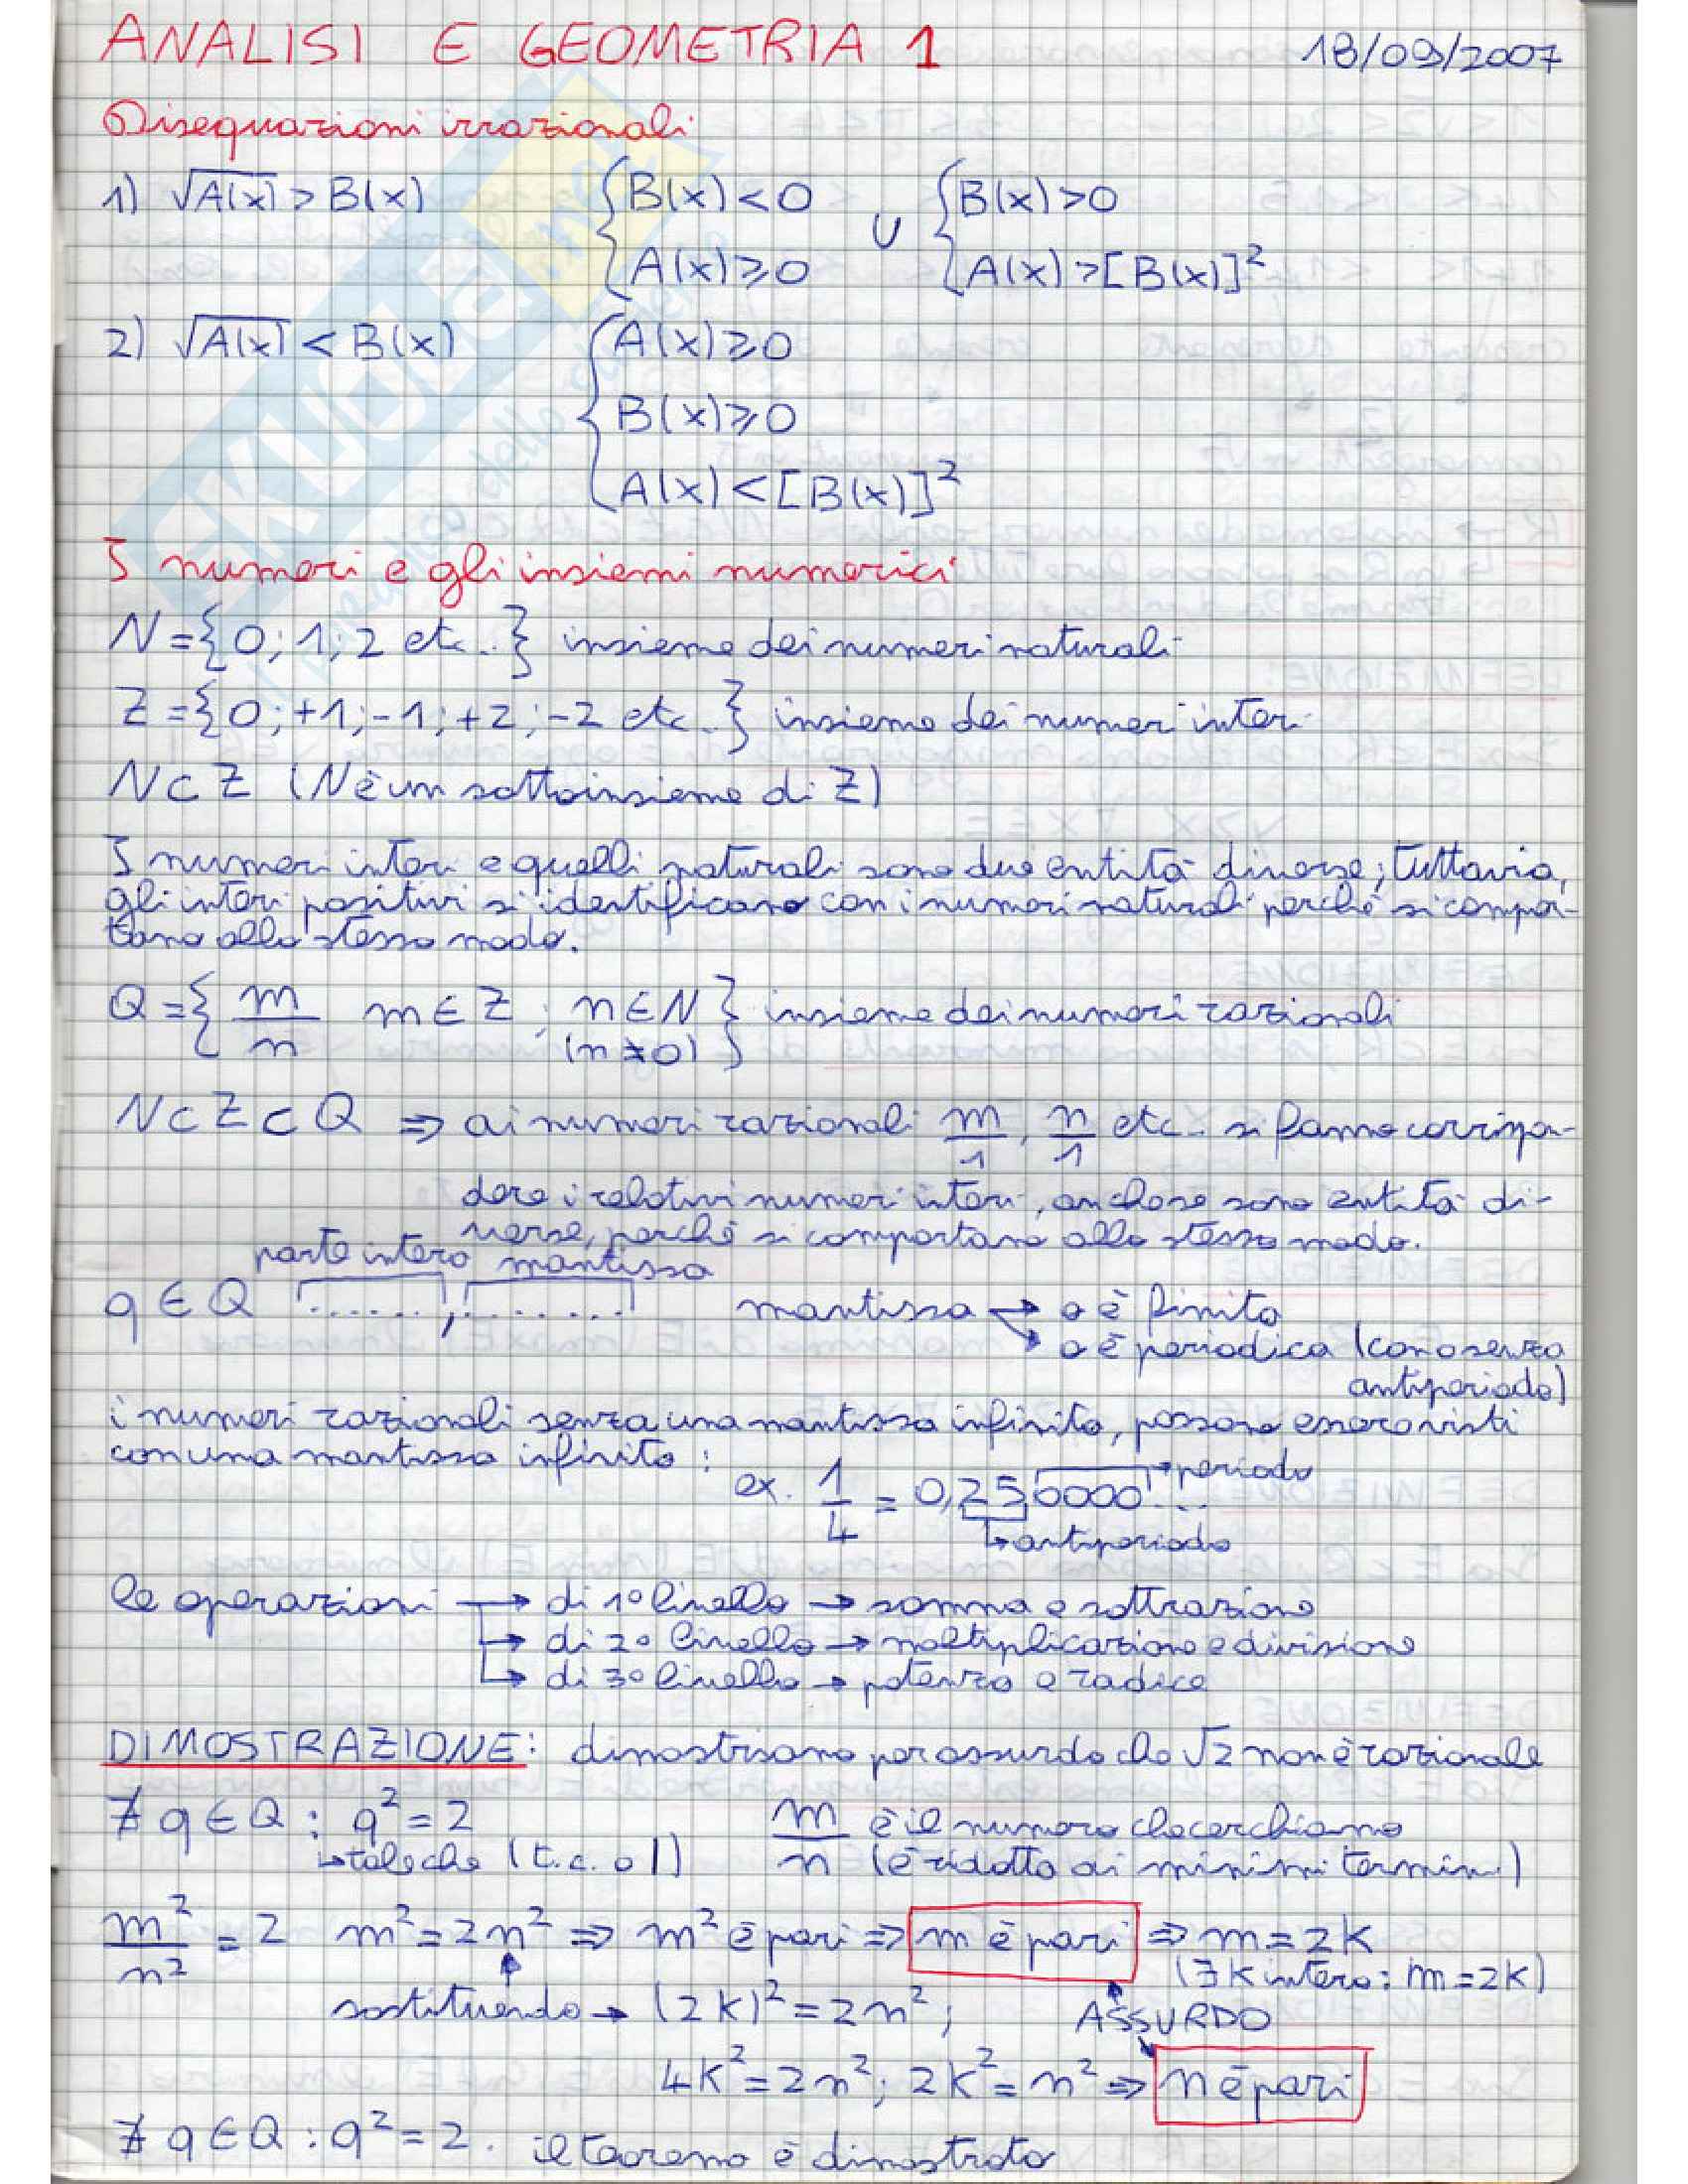 ANALISI E GEOMETRIA 1 18/09/2007
Disequazioni irrazionali
1) √A(x) > B(x) { B(x) < 0 ∪ { B(x) > 0
A(x) ⩾ 0 A(x) > [B(x)]²
2) √A(x) < B(x) { A(x) ⩾ 0
B(x) ⩾ 0
A(x) < [B(x)]²
I numeri e gli insiemi numerici
N = {0; 1; 2 etc..} insieme dei numeri naturali
Z = {0; +1; -1; +2; -2 etc..} insieme dei numeri interi
N ⊂ Z (N è un sottoinsieme di Z)
I numeri interi e quelli naturali sono due entità diverse; tuttavia,
gli interi positivi si identificano con i numeri naturali perché si compor-
tano allo stesso modo.
Q = { m/n m ∈ Z ; n ∈ N (n ≠ 0) } insieme dei numeri razionali
N ⊂ Z ⊂ Q ⇒ ai numeri razionali m/1, n/1 etc.. si fanno corrispon-
dere i relativi numeri interi, anche se sono entità di-
verse, perché si comportano allo stesso modo.
parte intera mantissa
q ∈ Q ......,....... mantissa → o è finita
→ o è periodica (con o senza
antiperiodo)
i numeri razionali senza una mantissa infinita, possono essere visti
con una mantissa infinita:
ex. 1/4 = 0,250000... → periodo
↳ antiperiodo
le operazioni → di 1° livello → somma e sottrazione
→ di 2° livello → moltiplicazione e divisione
→ di 3° livello → potenza e radice
DIMOSTRAZIONE: dimostriamo per assurdo che √2 non è razionale
∄ q ∈ Q : q² = 2 m/n è il numero che cerchiamo
↳ tale che (t.c. o |) (è ridotto ai minimi termini)
m²/n² = 2 m² = 2n² ⇒ m² è pari ⇒ m è pari ⇒ m = 2k
(∃ k intero : m = 2k)
sostituendo → (2k)² = 2n²; ASSURDO
4k² = 2n²; 2k² = n² ⇒ n è pari
∄ q ∈ Q : q² = 2. il teorema è dimostrato